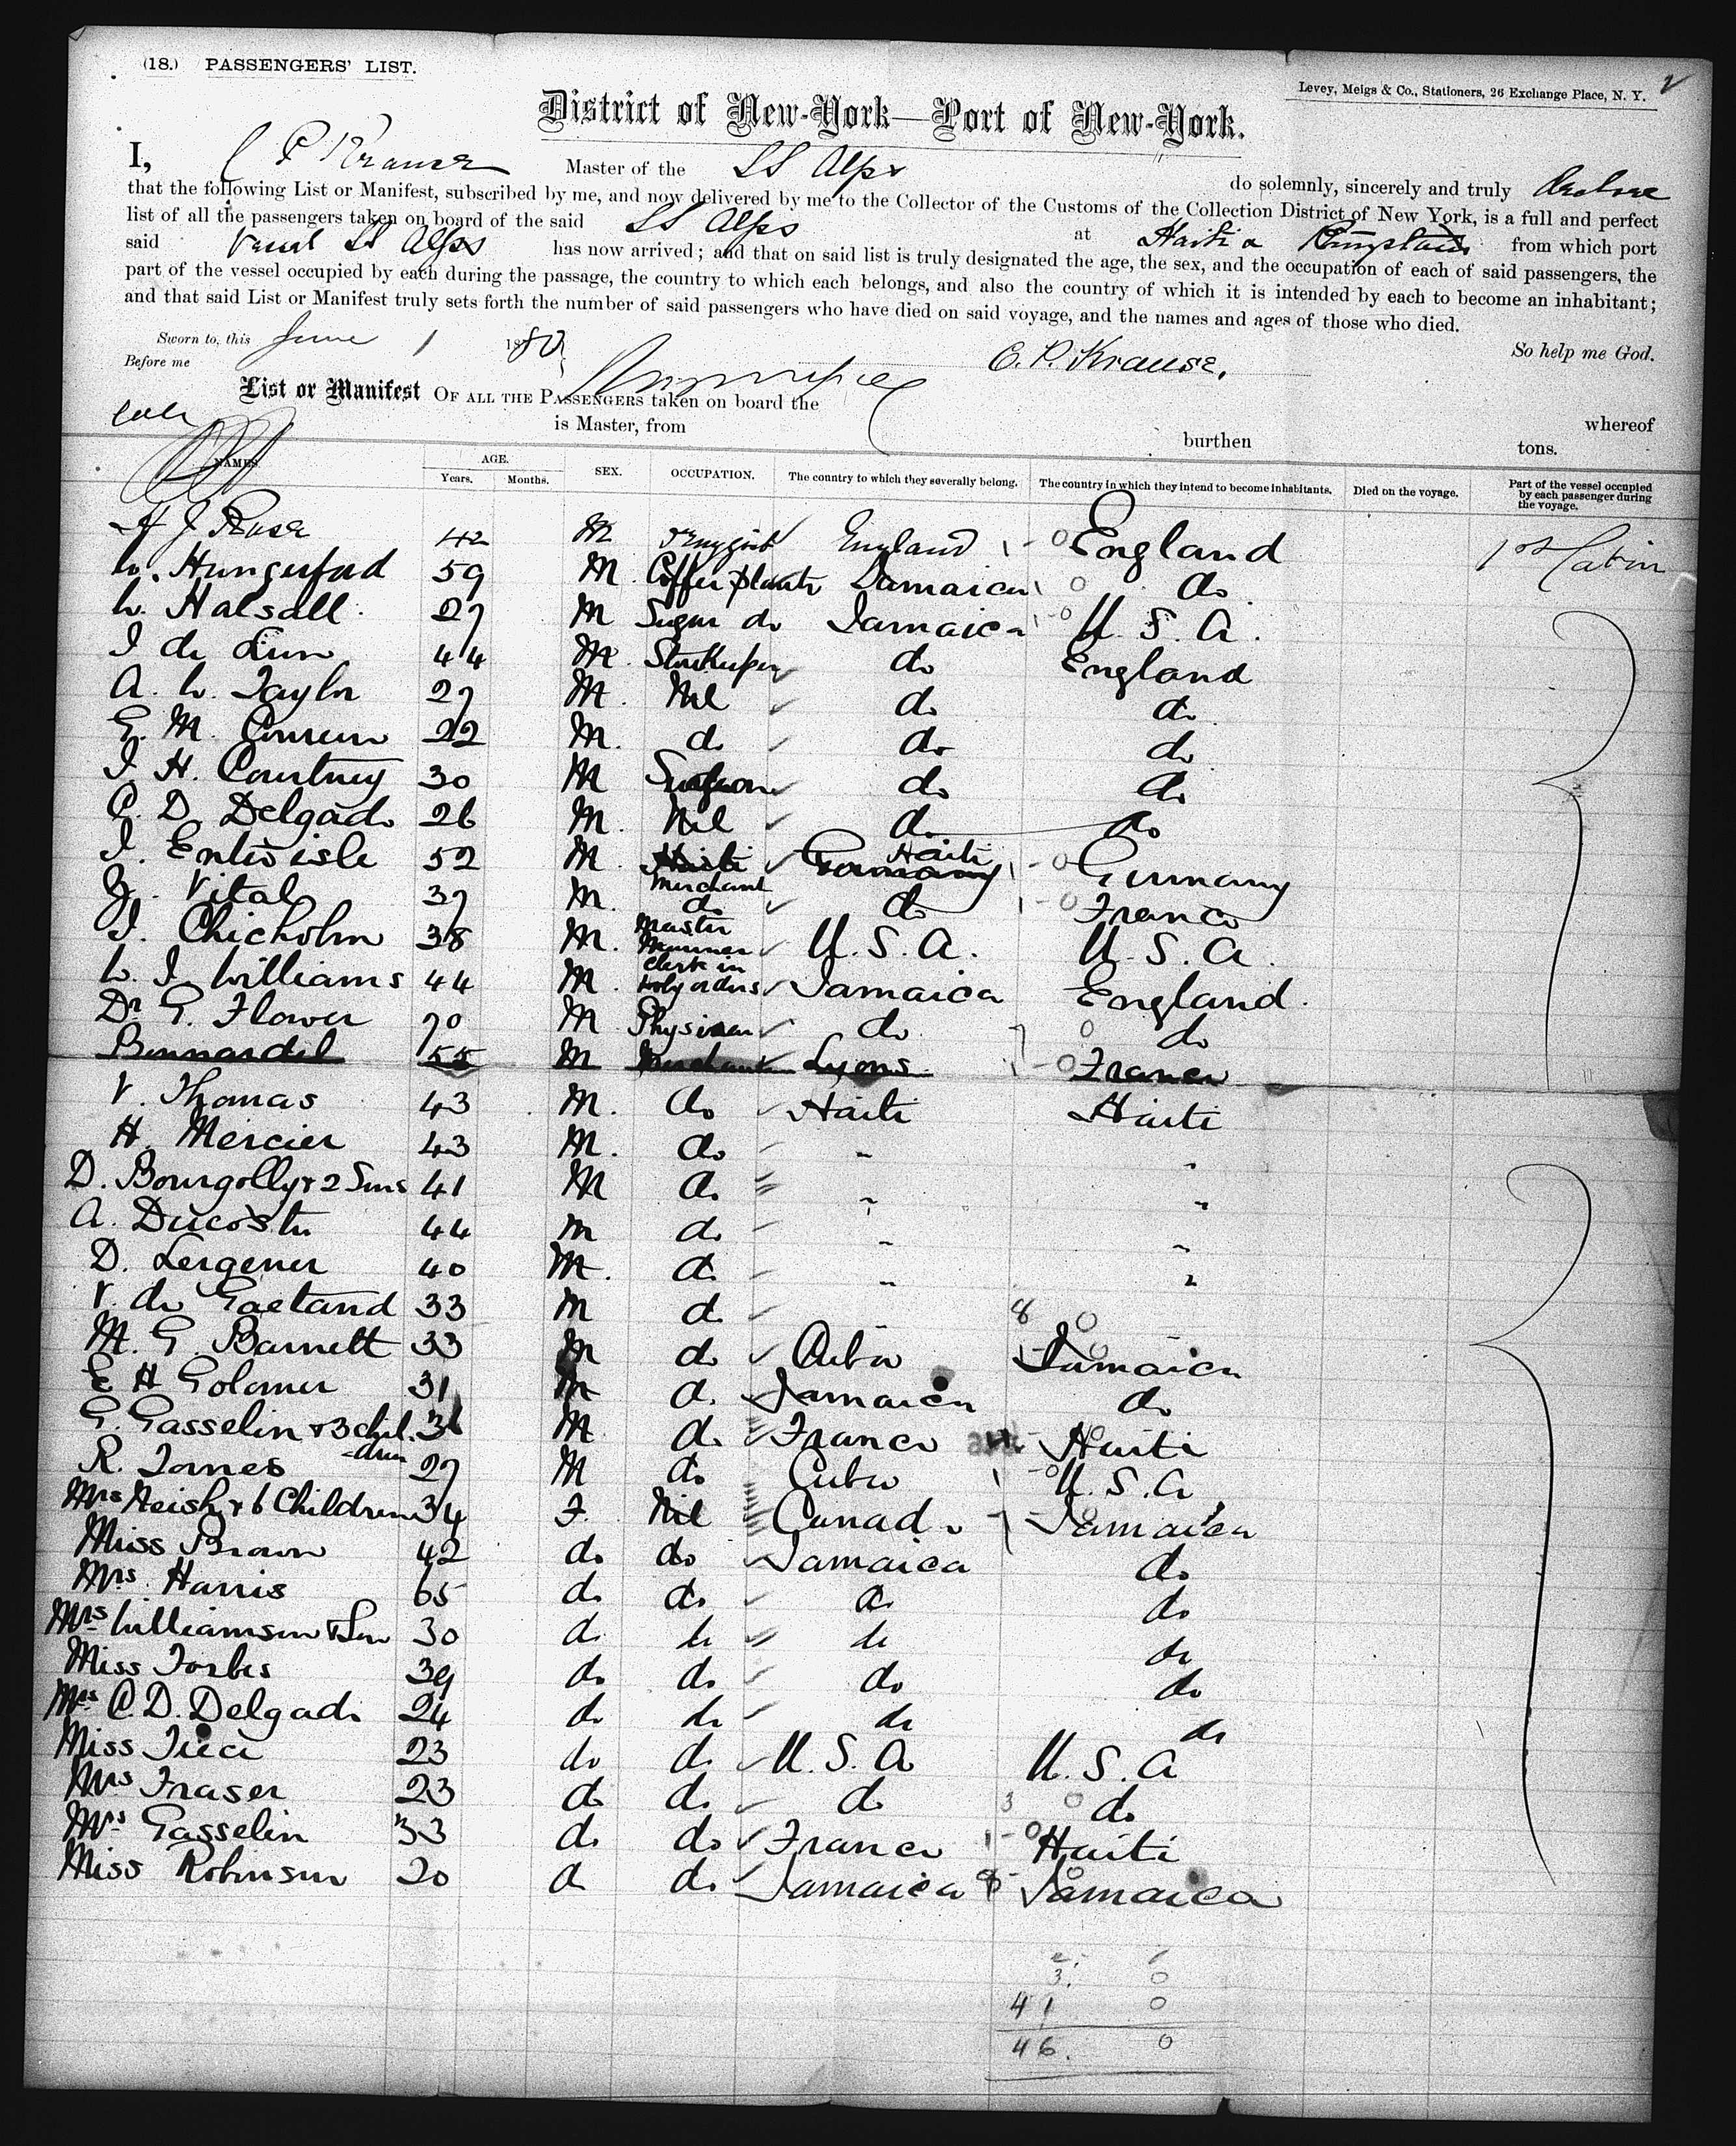 (18.) PASSENGERS' LIST.
Levey, Meigs & Co., Stationers, 26 Exchange Place, N. Y.
District of New-York—Port of New-York.
I, C P Krause Master of the SS Alps do solemnly, sincerely and truly
that the following List or Manifest, subscribed by me, and now delivered by me to the Collector of the Customs of the Collection District of New York, is a full and perfect
list of all the passengers taken on board of the said SS Alps at Haiti & Kingston from which port
said Vessel SS Alps has now arrived; and that on said list is truly designated the age, the sex, and the occupation of each of said passengers, the
part of the vessel occupied by each during the passage, the country to which each belongs, and also the country of which it is intended by each to become an inhabitant;
and that said List or Manifest truly sets forth the number of said passengers who have died on said voyage, and the names and ages of those who died.
Sworn to, this June 1 18 So help me God.
Before me C. P. Krause.
List or Manifest OF ALL THE PASSENGERS taken on board the whereof
is Master, from burthen tons.
NAMES. AGE. Years. Months. SEX. OCCUPATION. The country to which they severally belong. The country in which they intend to become inhabitants. Died on the voyage. Part of the vessel occupied by each passenger during the voyage.
42 M England England 1st Cabin
W. Hungerford 59 M. Coffee planter Jamaica do.
W. Halsall. 27 M Sugar do Jamaica U. S. A.
44 M. Storekeeper do England
A. W. Taylor 27 M. Nil do do
22 M. do do do
I. H. Courtney 30 M Surgeon do do
C. D. Delgado 26 M. Nil do do
I. Entwisle 52 M. Haiti Merchant Germany Haiti Germany
Vital 37 M. do do France
I. Chicholm 38 M. Master Mariner U. S. A. U. S. A.
W. J. Williams 44 M. Clerk in Holy orders Jamaica England.
Dr G. Flower 70 M Physician do do
Bonnardel 55 M Merchant Lyons France
V. Thomas 43 M. do Haiti Haiti
H. Mercier 43 M. do " "
D. Bourgolly & 2 Sons 41 M do " "
A. Ducoste 44 M do " "
D. Lergener 40 M. do " "
V. de Gaetand 33 M do "
M. G. Barnett 33 M do Cuba Jamaica
E H Golomer 31 M do Jamaica do
G. Gasselin & 3 chil-dren 36 M do France Haiti
R. Torres 27 M do Cuba U. S. A
Mrs Neish & 6 Children 34 F. Nil Canada Jamaica
Miss Brown 42 do do Jamaica do
Mrs. Harris 65 do do do do
Mrs Williamson & Son 30 do do do do
Miss Forbes 39 do do do do
Mrs C. D. Delgado 24 do do do do
Miss 23 do do U. S. A U. S. A
Mrs Fraser 23 do do do do
Mrs Gasselin 33 do do France Haiti
Miss Robinson 20 do do Jamaica Jamaica
3. 0
41 0
46. 0